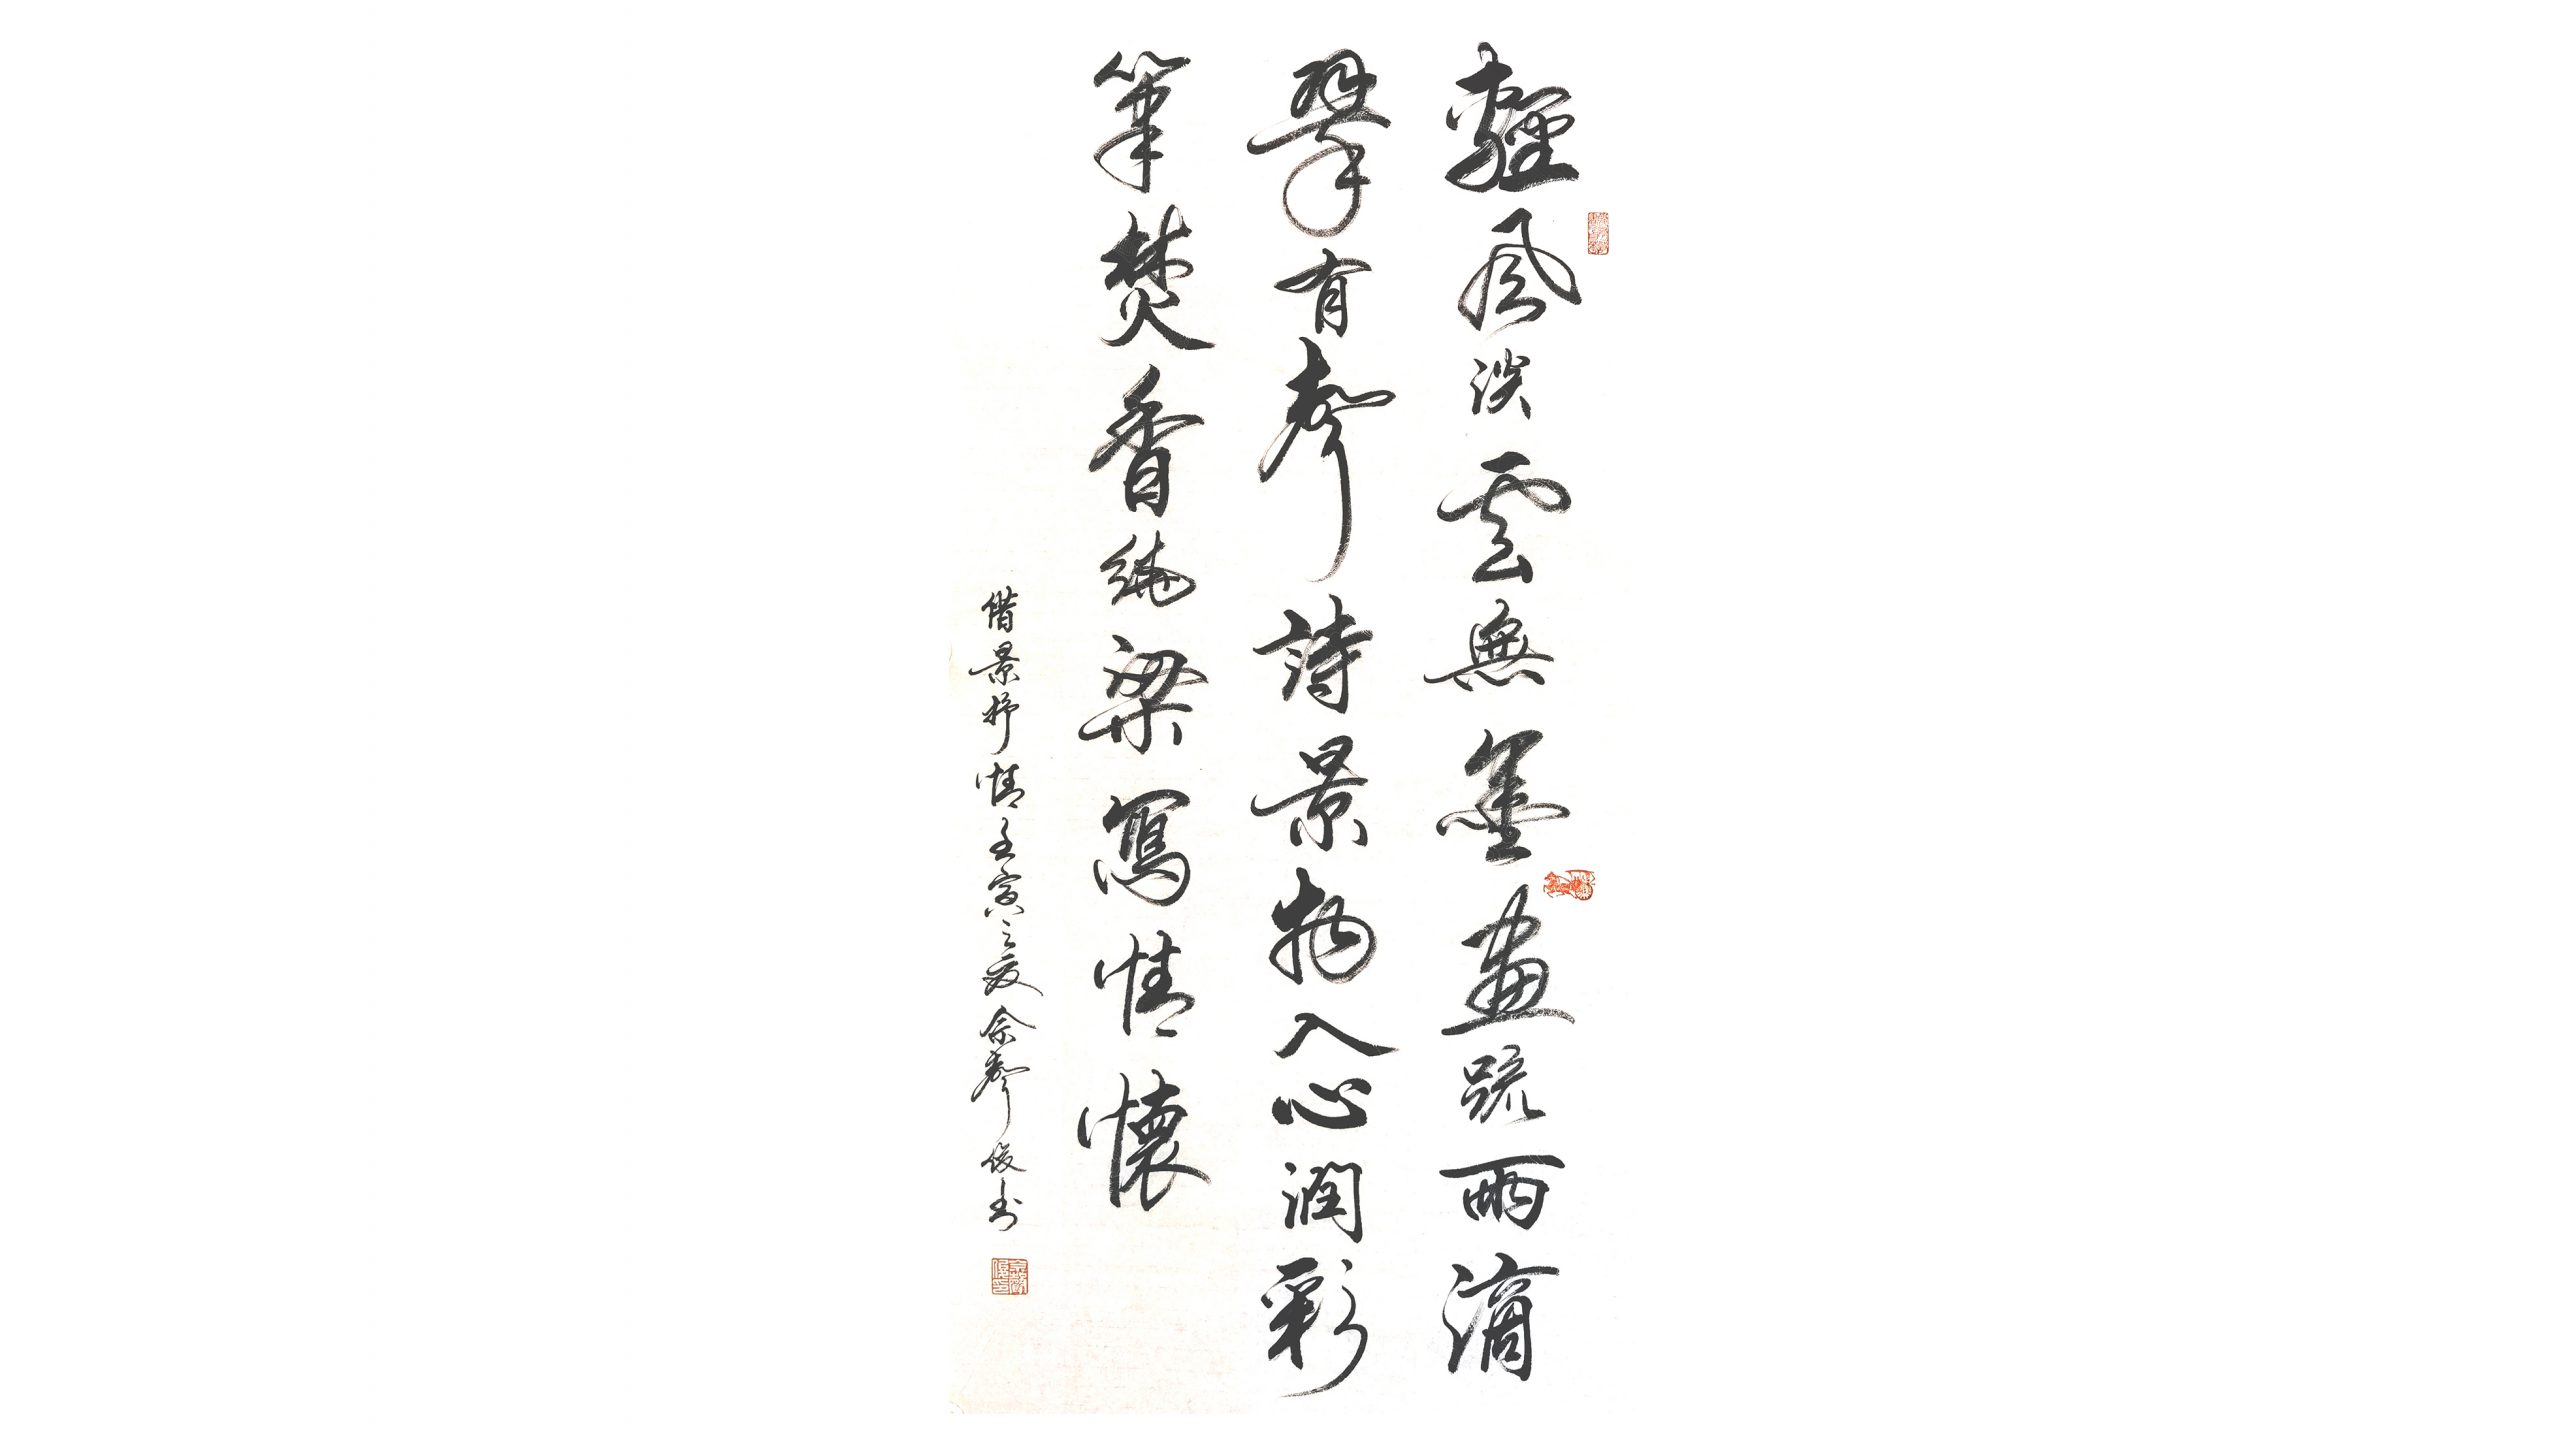 輕風淡雲無墨畫疏雨滴
翠有聲詩景物入心潤彩
筆焚香繞梁寫情懷
借景抒情壬寅之夏余聲俊書